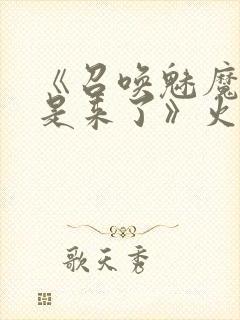 《召唤魅魔
是来了》火
歌天秀